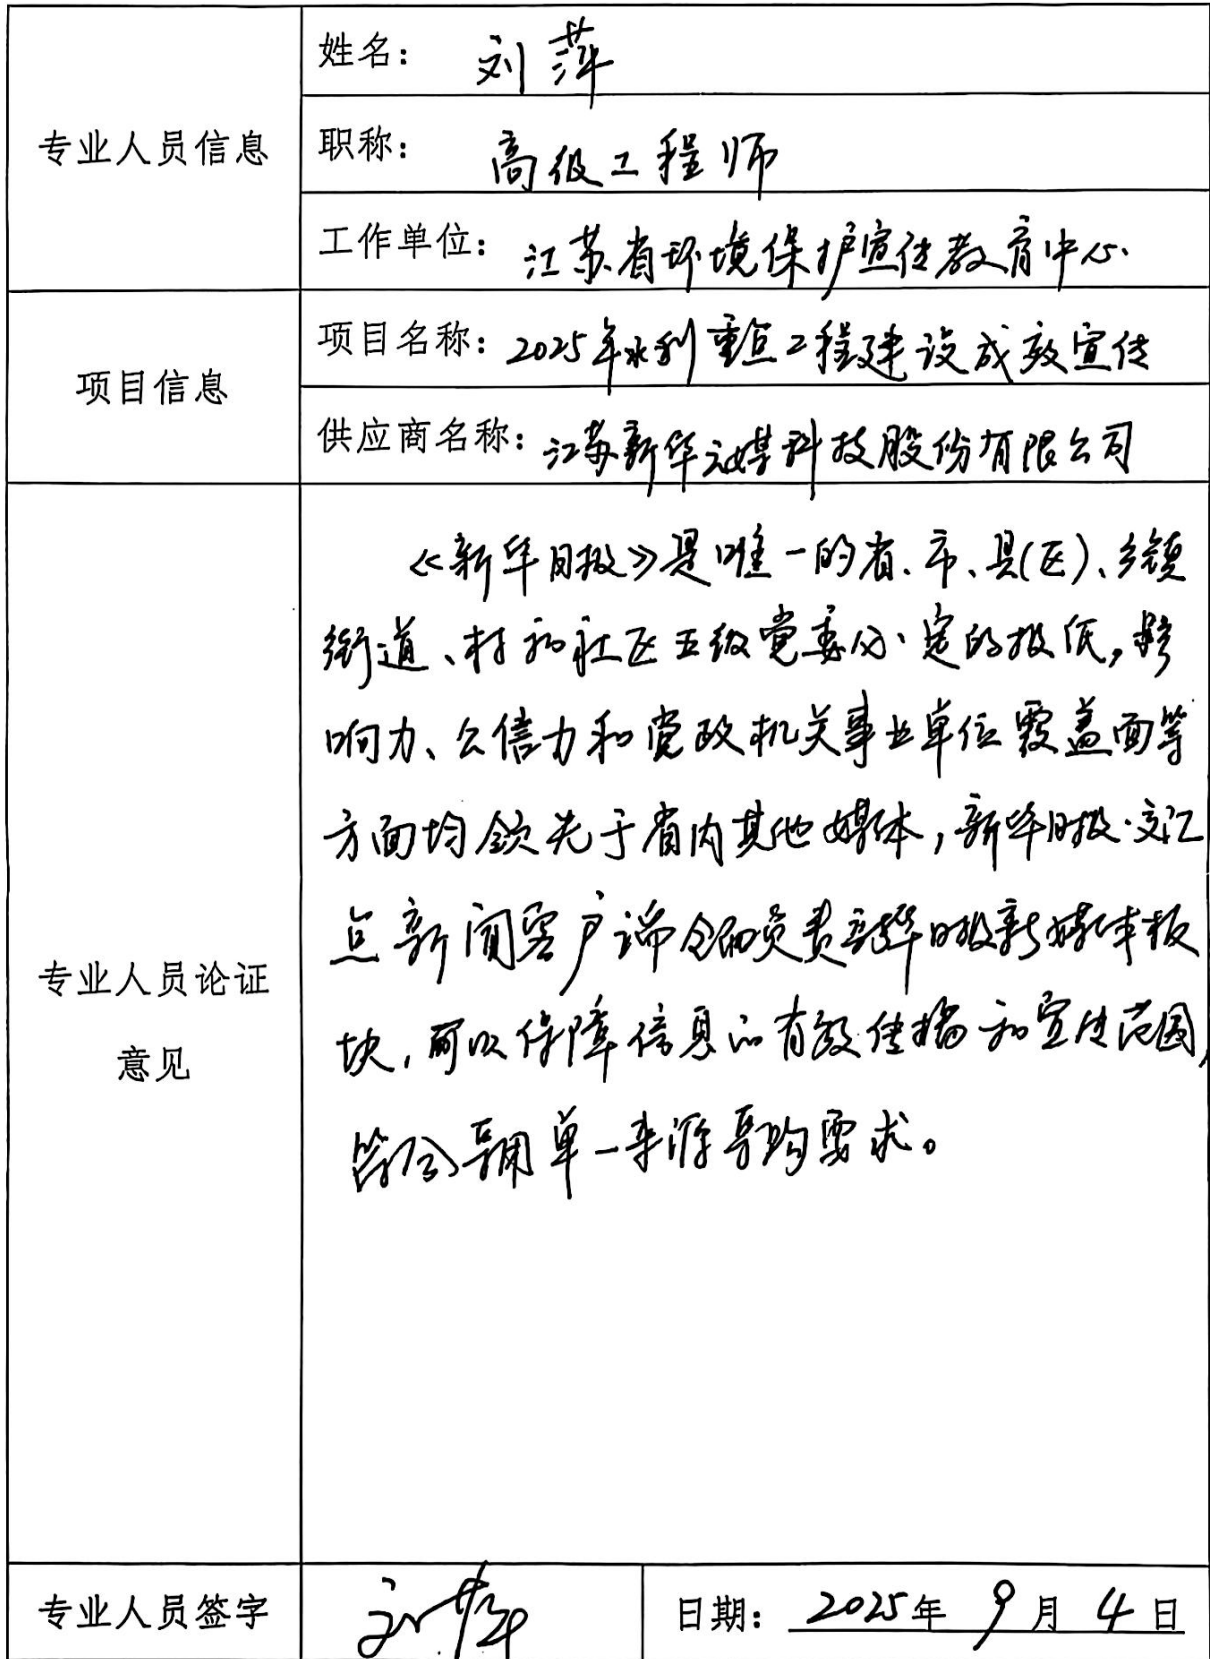 专业人员信息
姓名： 刘萍
职称： 高级工程师
工作单位： 江苏省环境保护宣传教育中心
项目信息
项目名称：2025年水利重点工程建设成效宣传
供应商名称：江苏新华云媒科技股份有限公司
专业人员论证
意见
《新华日报》是唯一的省、市、县(区)、乡镇
街道、村和社区五级党委必定的报纸，影
响力、公信力和党政机关事业单位覆盖面等
方面均领先于省内其他媒体，新华日报·交汇
点新闻客户端全面负责新华日报新媒体板
块，可以保障信息的有效传播和宣传范围，
符合采用单一来源采购要求。
专业人员签字
刘萍
日期： 2025年 9月 4日